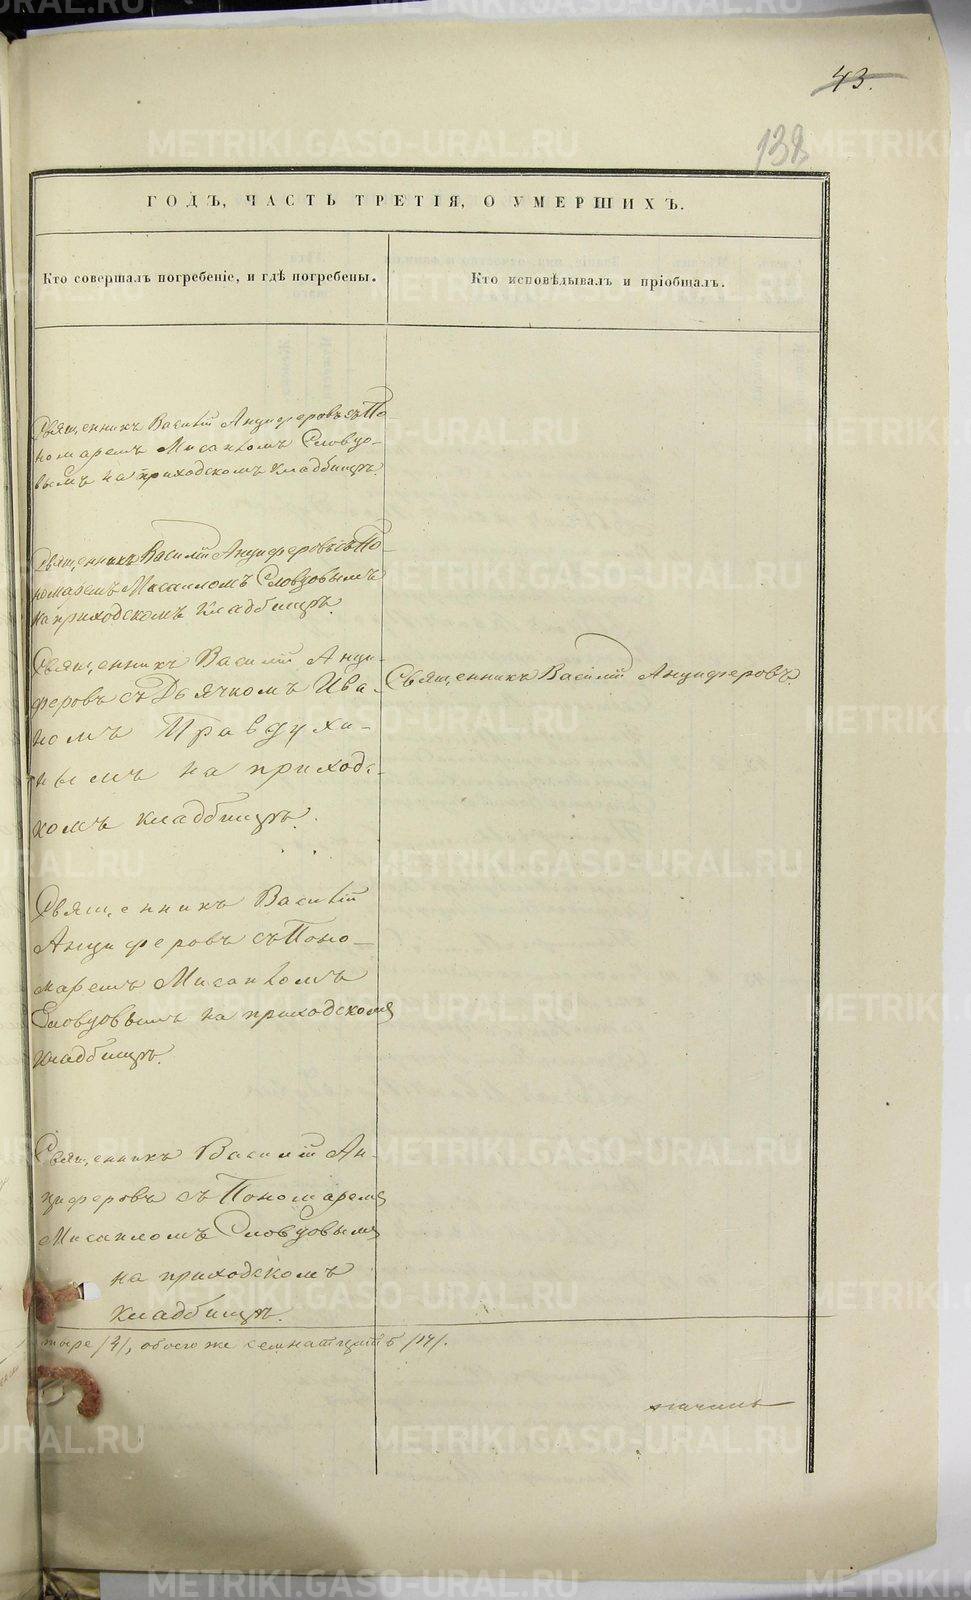 43.
138
ГОДЪ, ЧАСТЬ ТРЕТІЯ, О УМЕРШИХЪ.
Кто совершалъ погребеніе, и гдѣ погребены.
Кто исповѣдывалъ и пріобщалъ.
Священникъ Василій Анциферовъ съ По-
номаремъ Мисаиломъ Словцо-
вымъ на приходскомъ кладбищѣ.
Священникъ Василій Анциферовъ съ По-
номаремъ Мисаиломъ Словцовымъ
на приходскомъ кладбищѣ.
Священникъ Василій Анци-
феровъ съ Дьячкомъ Ива-
номъ Правдухи-
нымъ на приходс-
комъ кладбищѣ.
Священникъ Василій Анциферовъ.
Священникъ Василій
Анциферовъ съ Поно-
маремъ Мисаиломъ
Словцовымъ на приходскомъ
кладбищѣ.
Священникъ Василій Ан-
циферовъ съ Пономаремъ
Мисаиломъ Словцовымъ
на приходскомъ
кладбищѣ.
тыре /4/, обоего же семнатцать /17/.
METRIKI.GASO-URAL.RU